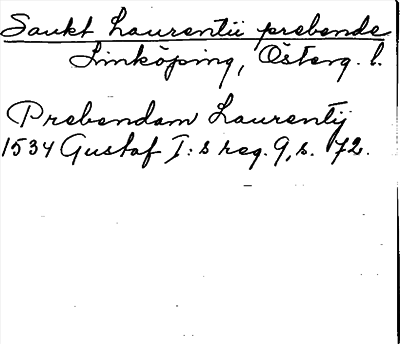 Sankt Laurentii prebende
Linköping, Österg. l.
Prebendam Laurentij
1534 Gustaf I:s reg. 9, s. 172.